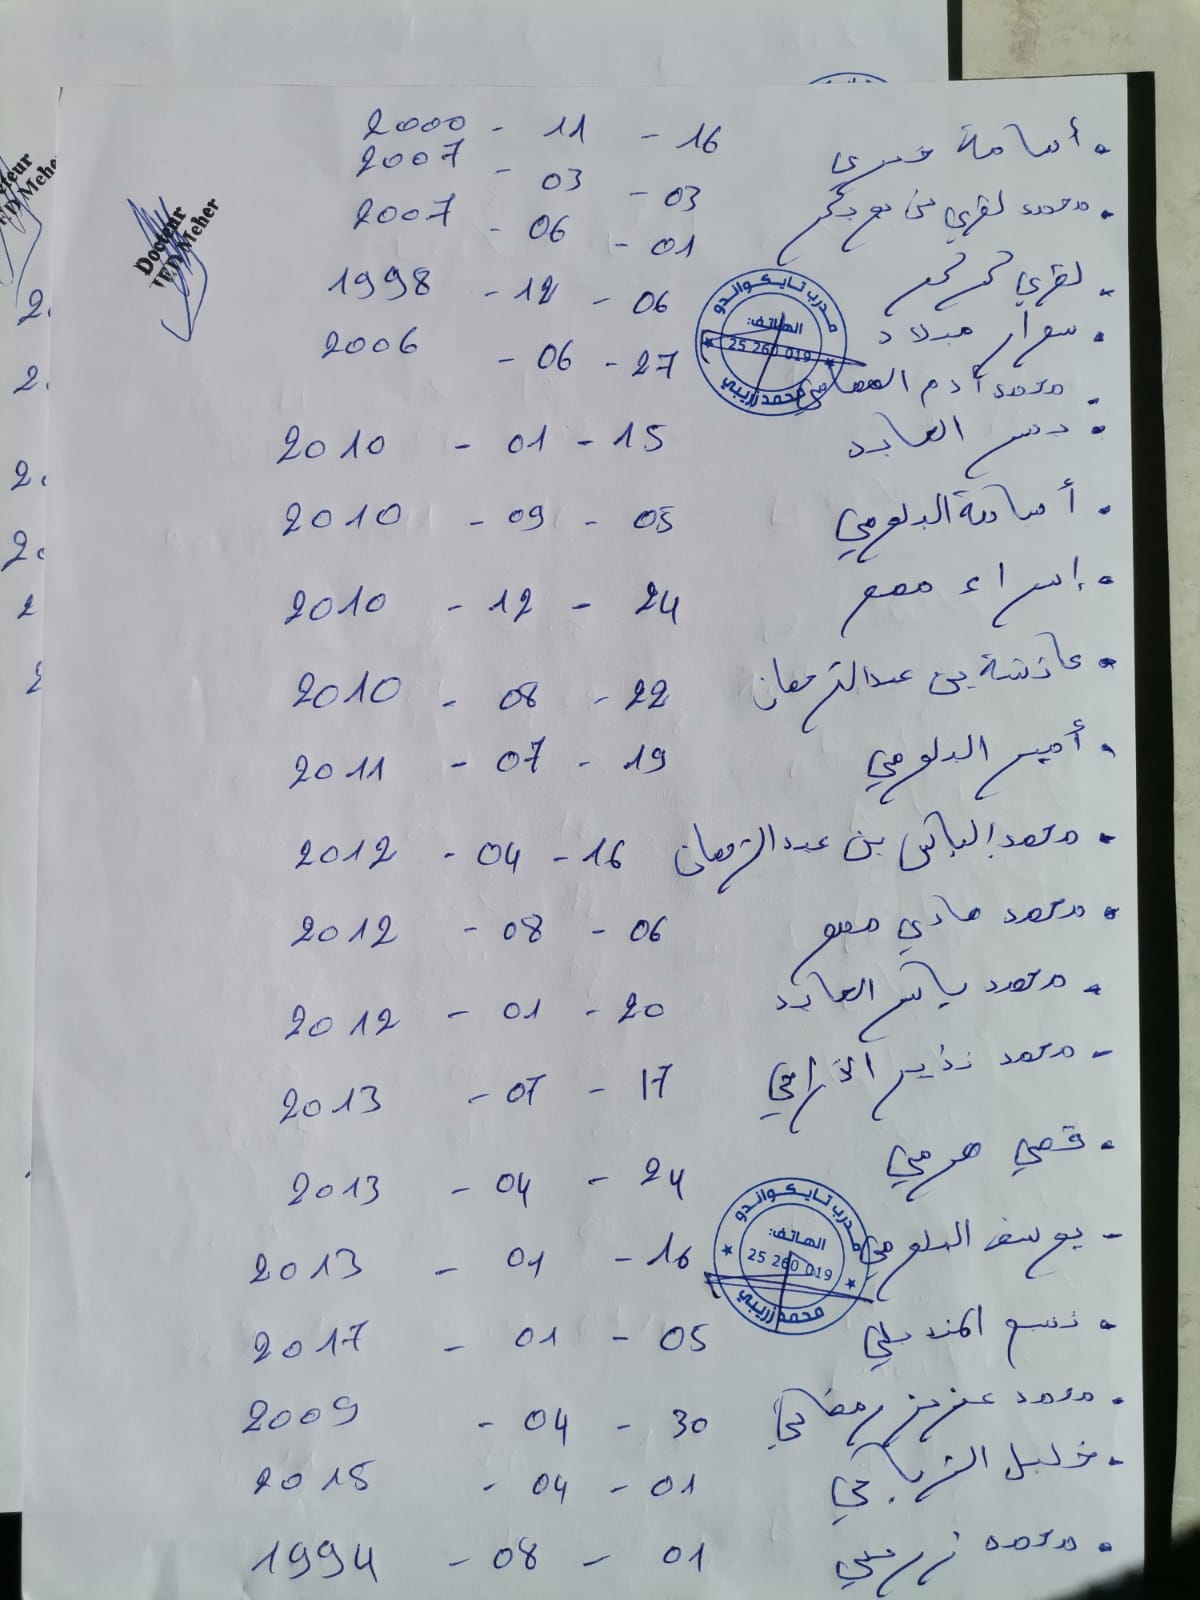 أسامة خيري 16 - 11 - 2000
محمد لقري بن بوبكر 03 - 03 - 2007
لقري 01 - 06 - 2007
سوار ميلاد 06 - 12 - 1998
محمد آدم 27 - 06 - 2006
العابد 15 - 01 - 2010
أسامة البلومي 05 - 09 - 2010
إسراء 24 - 12 - 2010
عائشة بن عبد الرحمان 22 - 08 - 2010
أمير البلومي 19 - 07 - 2011
محمد إلياس بن عبد الرحمان 16 - 04 - 2012
محمد هادي 06 - 08 - 2012
محمد ياسر العابد 20 - 01 - 2012
محمد نذير 17 - 07 - 2013
قصي هرمي 24 - 04 - 2013
يوسف البلومي 16 - 01 - 2013
05 - 01 - 2017
محمد عزيز رمضاني 30 - 04 - 2009
خليل الرياحي 01 - 04 - 2015
محمد زريبي 01 - 08 - 1994
Docteur
Meher
مدرب تايكواندو
الهاتف:
25 260 019
محمد زريبي
مدرب تايكواندو
الهاتف:
25 260 019
محمد زريبي